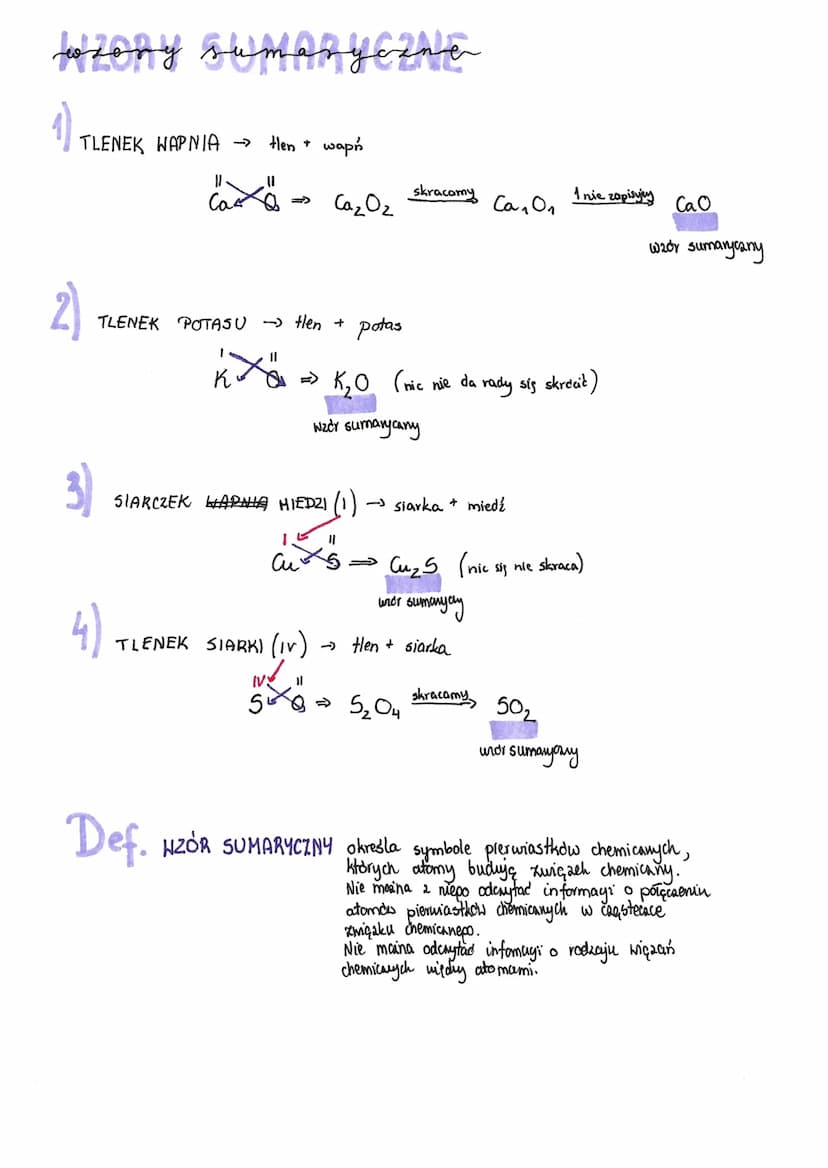 WZORY SUMARYCZNE
wzory sumaryczne
1) TLENEK WAPNIA → tlen + wapń
II II
Ca O ⇒ Ca₂O₂ skracamy → Ca₁O₁ 1 nie zapisujemy → CaO
wzór sumaryczny
2) TLENEK POTASU → tlen + potas
I II
K O ⇒ K₂O (nic nie da rady się skrócić)
wzór sumaryczny
3) SIARCZEK WAPNIA MIEDZI (I) → siarka + miedź
I II
Cu S ⇒ Cu₂S (nic się nie skraca)
wzór sumaryczny
4) TLENEK SIARKI (IV) → tlen + siarka
IV II
S O ⇒ S₂O₄ skracamy → SO₂
wzór sumaryczny
Def. WZÓR SUMARYCZNY określa symbole pierwiastków chemicznych,
których atomy budują związek chemiczny.
Nie można z niego odczytać informacji o połączeniu
atomów pierwiastków chemicznych w cząsteczce
związku chemicznego.
Nie można odczytać infomacji o rodzaju wiązań
chemicznych między atomami.